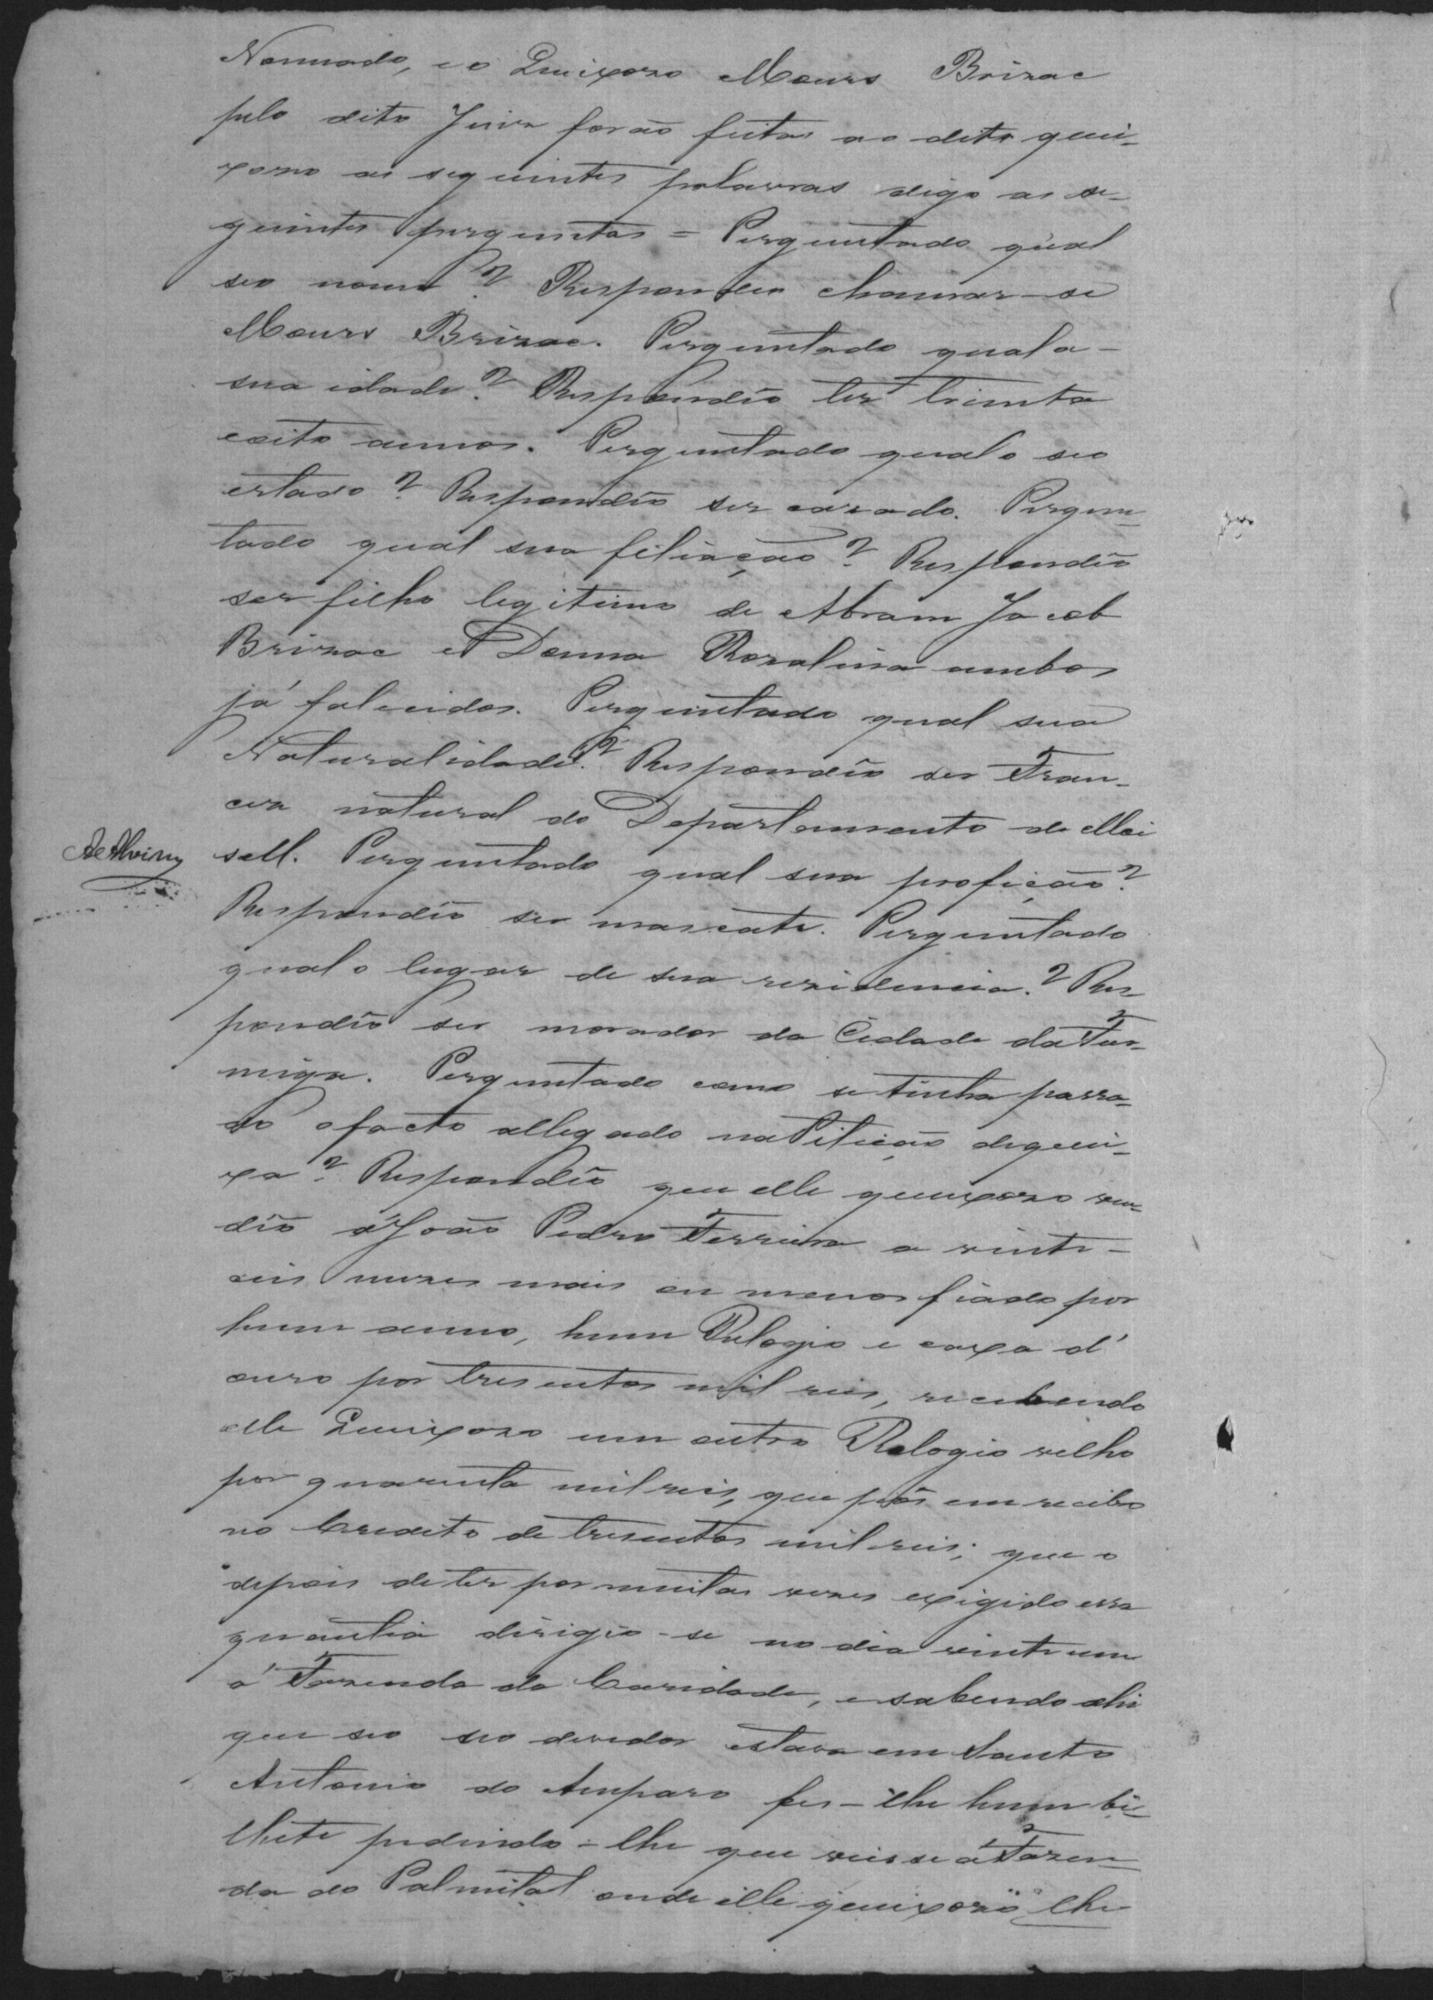 Nomeado, e o Queixozo Mours Brizac
pelo dito Juiz forão feitas ao dito quei-
xozo as seguintes palavras digo as se-
guintes perguntas = Perguntado qual
seo nome? Respondeo chamar-se
Mours Brizac. Perguntado qual a
sua idade? Respondêo ter trinta
eoito annos. Perguntado qual o seo
estado? Respondêo ser cazado. Pergun-
tado qual sua filiação? Respondêo
ser filho legitimo de Abram Jacob
Brizac e Donna Rozalina ambos
já falecidos. Perguntado qual sua
Naturalidade? Respondêo ser Fran-
cez natural do Departamento de Moi
sell. Perguntado qual sua profição?
Respondêo ser mascate. Perguntado
qual o lugar de sua rezidencia? Res-
pondêo ser morador da Cidade da For-
miga. Perguntado como se tinha passa-
do o facto allegado na Petição de quei-
xa? Respondêo que elle queixozo ven-
dêo á João Pedro Ferreira a vinte-
seis mezes mais ou menos fiado por
hum anno, hum Relogio e caxa d'
ouro por tresentos mil reis, recebendo
elle Queixozo um outro Relogio velho
por quarenta mil reis, que pôs em recibo
no Credito de tresentos mil reis; que o
depois de ter por muitas vezes exigido essa
quantia dirigio-se no dia vinte um
á Fazenda da Caridade, e sabendo ahi
que seo seo devedor estava em Santo
Antonio do Amparo fes-lhe hum bi-
lhete pedindo-lhe que viesse á Fazen-
da do Palmital onde elle queixozo lhe